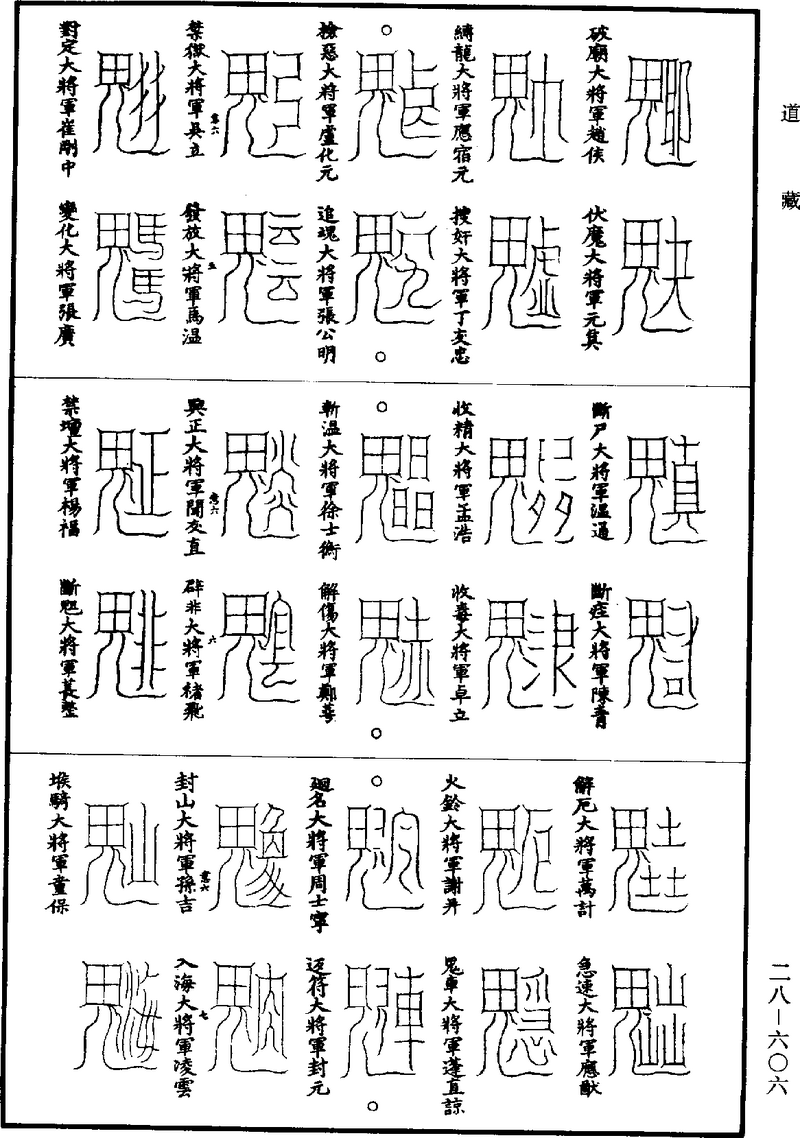 道藏
破廟大將軍趙侯
伏魔大將軍元真
縛龍大將軍應宿元
搜奸大將軍丁友忠
檢惡大將軍盧化元
追魂大將軍張公明
禁獄大將軍吳立
發放大將軍馬溫
對定大將軍崔剛中
變化大將軍張廣
斷尸大將軍溫通
斷疰大將軍陳青
收精大將軍孟浩
收毒大將軍卓立
斬溫大將軍徐士衡
解傷大將軍鄭
興正大將軍聞友直
辟非大將軍褚飛
禁壇大將軍楊福
斷大將軍萇
解厄大將軍萬計
急速大將軍應猷
火鈴大將軍謝昇
鬼車大將軍蓬直諒
廻名大將軍周士寧
迓符大將軍封元
封山大將軍孫吉
入海大將軍凌雲
堠騎大將軍童保
二八—六〇六